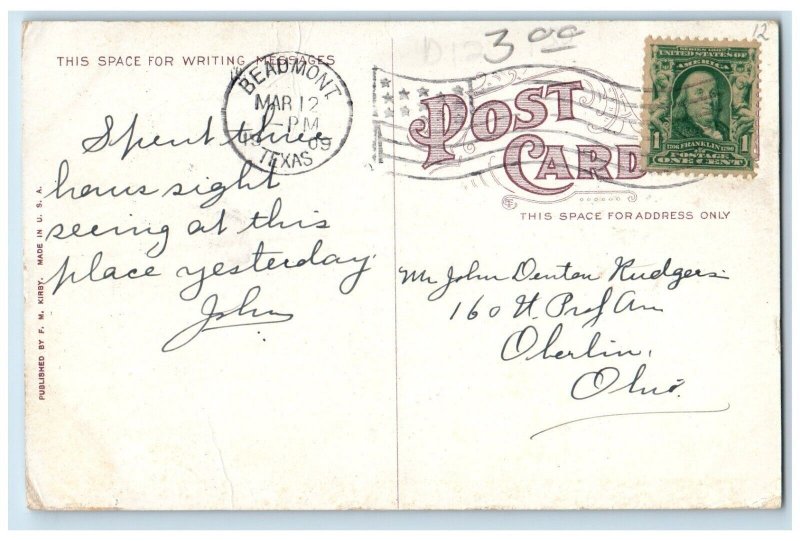 THIS SPACE FOR WRITING MESSAGES
BEAUMONT.
MAR 12
-PM
1909
TEXAS
3 00
D12
12
POST
CARD
SERIES 1902
UNITED STATES OF
AMERICA
1 1
1706 FRANKLIN 1790
POSTAGE
ONE CENT
THIS SPACE FOR ADDRESS ONLY
Spent three
hours sight
seeing at this
place yesterday.
John
Mr John Denton Rudgers
160 Prof
Oberlin,
Ohio.
PUBLISHED BY F. M. KIRBY. MADE IN U. S. A.